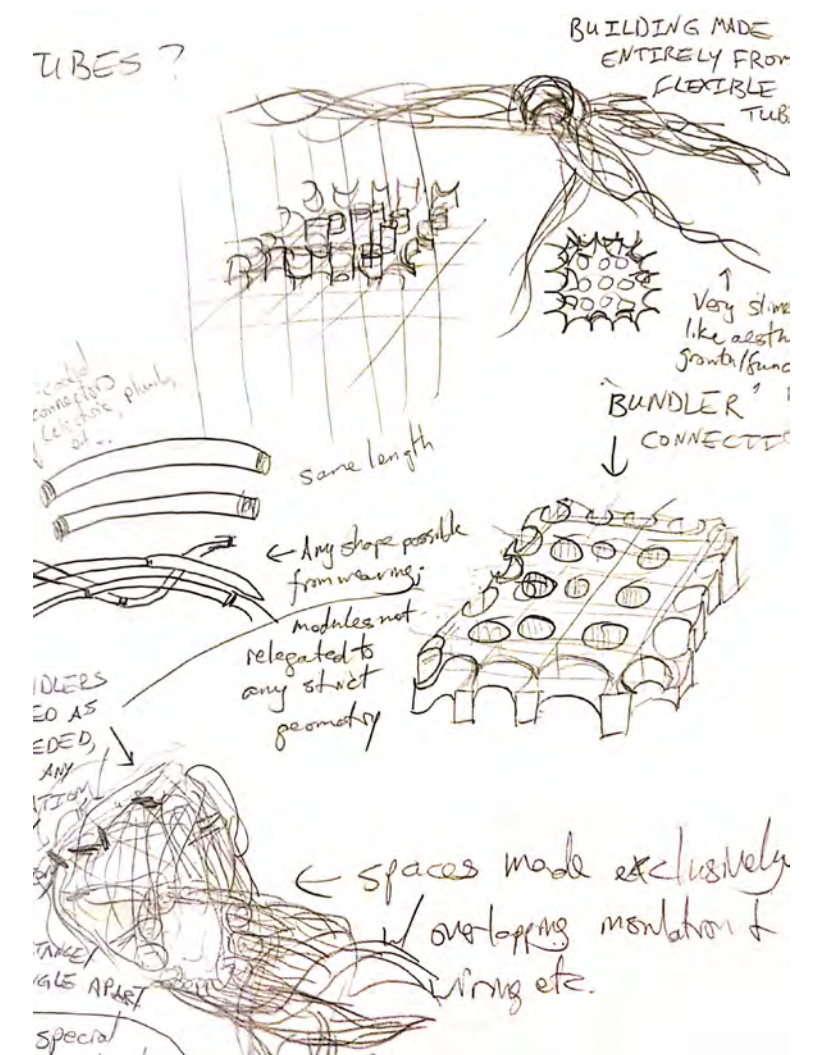 TUBES?
BUILDING MADE
ENTIRELY FROM
FLEXIBLE
TUB
Very slime
like aesth
growth/func
connectors
(electric, plumb,
et..
"BUNDLER"
CONNECTIO
same length
← Any shape possible
from weaving;
modules not
relegated to
any strict
geometry
DLERS
ED AS
EDED,
ANY
ATION
← spaces made exclusively
w/ overlapping insulation &
wiring etc.
TANCE/
GLE APART
special